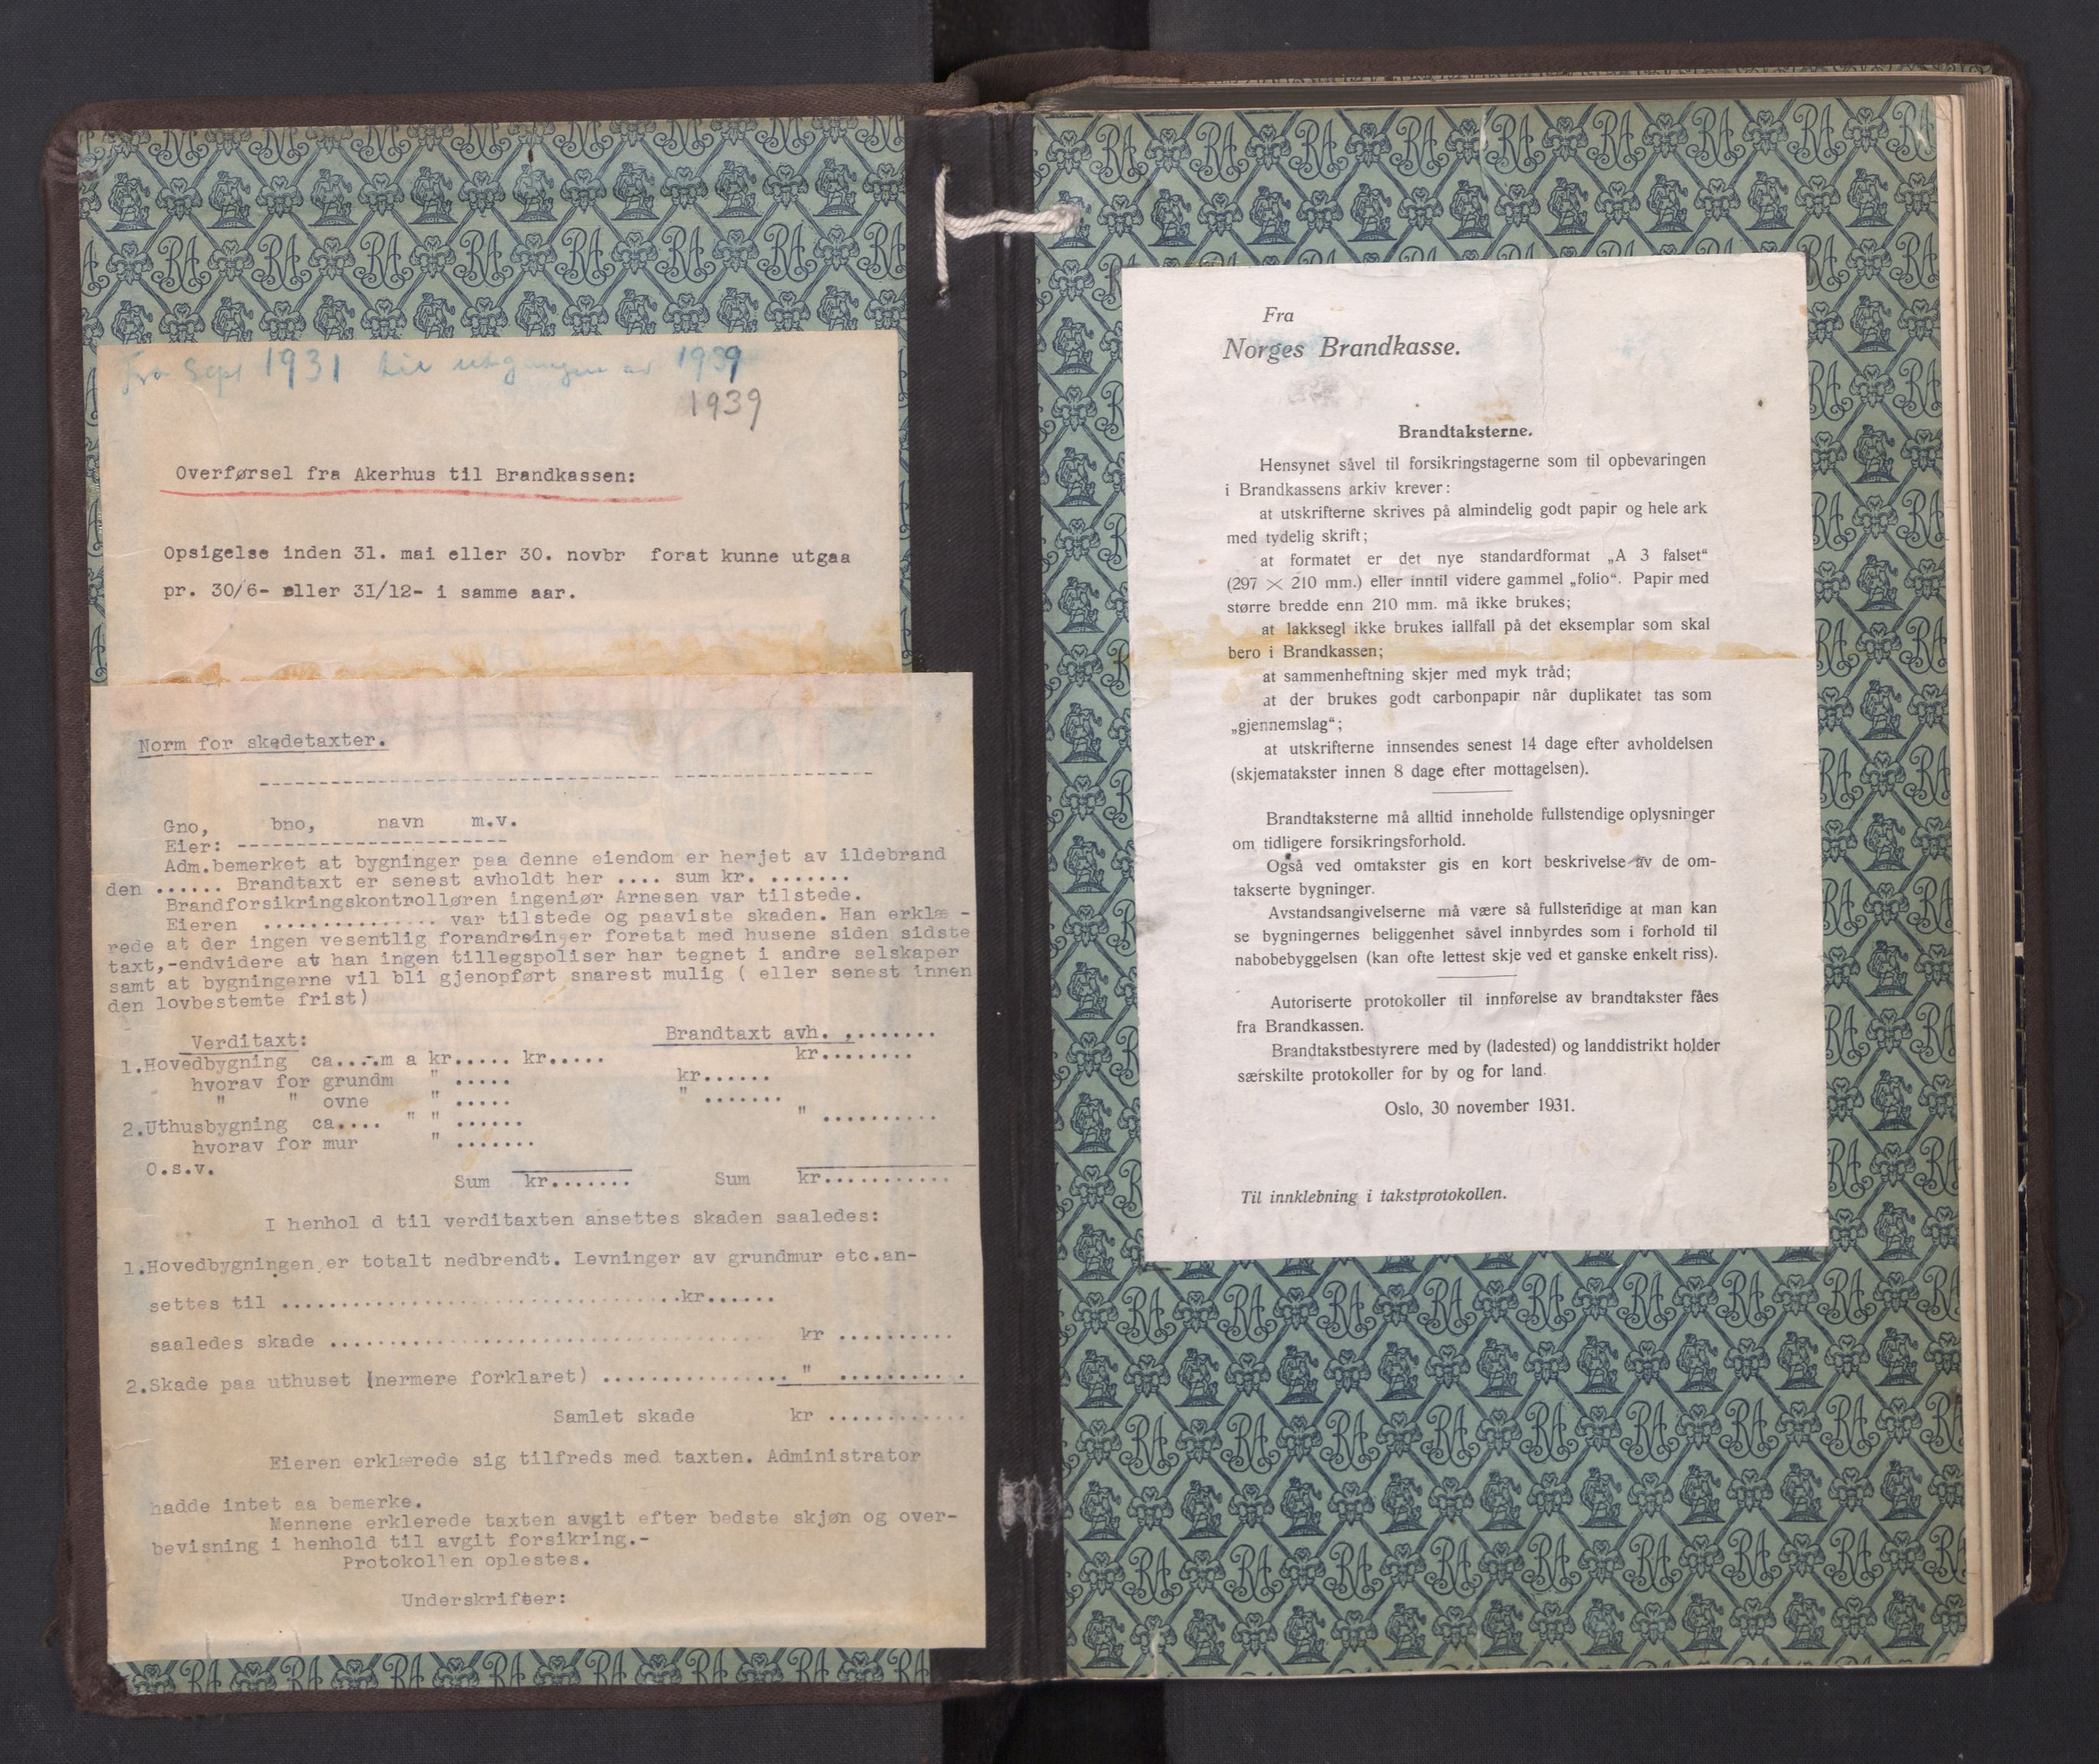 Fra Sept 1931 til utgangen av 1939
1939
Overførsel fra Akerhus til Brandkassen:
Opsigelse inden 31. mai eller 30. novbr forat kunne utgaa
pr. 30/6- eller 31/12- i samme aar.
Norm for skadetaxter.
Gno, bno, navn m.v.
Eier: ----------------------
Adm.bemerket at bygninger paa denne eiendom er herjet av ildebrand
den ...... Brandtaxt er senest avholdt her .... sum kr. .......
Brandforsikringskontrolløren ingeniør Arnesen var tilstede.
Eieren ............... var tilstede og paaviste skaden. Han erklæ -
rede at der ingen vesentlig forandreinger foretat med husene siden sidste
taxt,-endvidere at han ingen tillegspoliser har tegnet i andre selskaper
samt at bygningerne vil bli gjenopført snarest mulig ( eller senest innen
den lovbestemte frist)
Verditaxt: Brandtaxt avh. ........
1.Hovedbygning ca....-m a kr..... kr..... kr........
hvorav for grundm " ..... kr......
" " ovne " ..... " .......
2.Uthusbygning ca.... " " ...... " ..........
hvorav for mur " .......
O.s.v.
Sum kr....... Sum kr...........
I henhol d til verditaxten ansettes skaden saaledes:
1.Hovedbygningen er totalt nedbrendt. Levninger av grundmur etc.an-
settes til .................................kr......
saaledes skade ....................................... kr ..........
2.Skade paa uthuset (nermere forklaret) ................ " ...........
Samlet skade kr ............
Eieren erklærede sig tilfreds med taxten. Administrator
hadde intet aa bemerke.
Mennene erklerede taxten avgit efter bedste skjøn og over-
bevisning i henhold til avgit forsikring.-
Protokollen oplestes.
Underskrifter:
Fra
Norges Brandkasse.
Brandtaksterne.
Hensynet såvel til forsikringstagerne som til opbevaringen
i Brandkassens arkiv krever:
at utskrifterne skrives på almindelig godt papir og hele ark
med tydelig skrift;
at formatet er det nye standardformat „A 3 falset“
(297 × 210 mm.) eller inntil videre gammel „folio“. Papir med
større bredde enn 210 mm. må ikke brukes;
at lakksegl ikke brukes iallfall på det eksemplar som skal
bero i Brandkassen;
at sammenheftning skjer med myk tråd;
at der brukes godt carbonpapir når duplikatet tas som
„gjennemslag“;
at utskrifterne innsendes senest 14 dage efter avholdelsen
(skjematakster innen 8 dage efter mottagelsen).
Brandtaksterne må alltid inneholde fullstendige oplysninger
om tidligere forsikringsforhold.
Også ved omtakster gis en kort beskrivelse av de om-
takserte bygninger.
Avstandsangivelserne må være så fullstendige at man kan
se bygningernes beliggenhet såvel innbyrdes som i forhold til
nabobebyggelsen (kan ofte lettest skje ved et ganske enkelt riss).
Autoriserte protokoller til innførelse av brandtakster fåes
fra Brandkassen.
Brandtakstbestyrere med by (ladested) og landdistrikt holder
særskilte protokoller for by og for land.
Oslo, 30 november 1931.
Til innklebning i takstprotokollen.